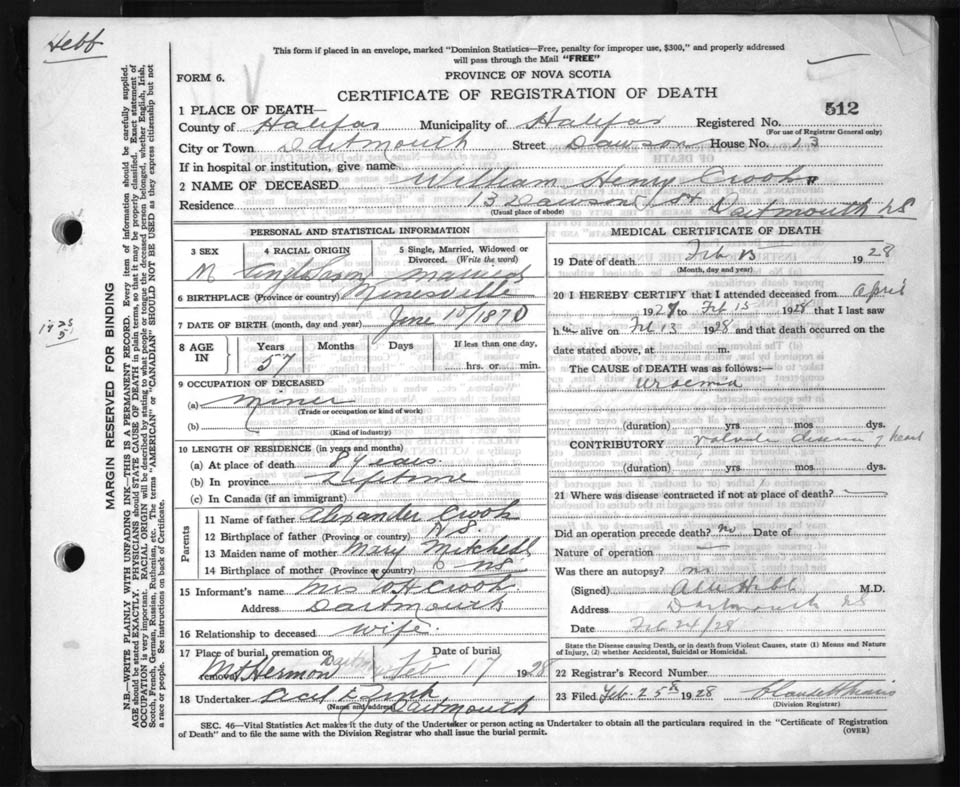 Hebb
This form if placed in an envelope, marked "Dominion Statistics—Free, penalty for improper use, $300," and properly addressed
will pass through the Mail "FREE"
FORM 6.
PROVINCE OF NOVA SCOTIA
CERTIFICATE OF REGISTRATION OF DEATH
512
1 PLACE OF DEATH—
County of Halifax Municipality of Halifax Registered No.
(For use of Registrar General only)
City or Town Dartmouth Street Dawson House No. 13
If in hospital or institution, give name
2 NAME OF DECEASED William Henry Crook
Residence 13 Dawson St Dartmouth NS
(Usual place of abode)
PERSONAL AND STATISTICAL INFORMATION
3 SEX 4 RACIAL ORIGIN 5 Single, Married, Widowed or
Divorced. (Write the word)
M married
6 BIRTHPLACE (Province or country) Minesville
7 DATE OF BIRTH (month, day and year) June 10/1870
8 AGE IN Years Months Days If less than one day,
57 hrs. or min.
9 OCCUPATION OF DECEASED
(a) Miner
(Trade or occupation or kind of work)
(b)
(Kind of industry)
10 LENGTH OF RESIDENCE (in years and months)
(a) At place of death 8 years
(b) In province Lifetime
(c) In Canada (if an immigrant)
Parents
11 Name of father Alexander Crook
12 Birthplace of father (Province or country) N.S.
13 Maiden name of mother Mary Mitchell
14 Birthplace of mother (Province or country) NS
15 Informant's name Mrs W H Crook
Address Dartmouth
16 Relationship to deceased wife.
17 Place of burial, cremation or Date of burial
removal Mt Hermon Feb 17 1928
18 Undertaker
(Name and address) Dartmouth
MEDICAL CERTIFICATE OF DEATH
19 Date of death Feb 13 1928
(Month, day and year)
20 I HEREBY CERTIFY that I attended deceased from April
1927 to Feb 13 1928 that I last saw
h im alive on Feb 13 1928 and that death occurred on the
date stated above, at m.
The CAUSE of DEATH was as follows:—
uraemia
(duration) yrs mos dys.
CONTRIBUTORY valvular disease of heart
(duration) yrs. mos dys.
21 Where was disease contracted if not at place of death?
Did an operation precede death? no Date of
Nature of operation
Was there an autopsy? no
(Signed) Hebb M.D.
Address Dartmouth NS
Date Feb 24/28
State the Disease causing Death, or in death from Violent Causes, state (1) Means and Nature
of Injury, (2) whether Accidental, Suicidal or Homicidal.
22 Registrar's Record Number
23 Filed Feb. 25th 1928
(Division Registrar)
SEC. 46—Vital Statistics Act makes it the duty of the Undertaker or person acting as Undertaker to obtain all the particulars required in the "Certificate of Registration
of Death" and to file the same with the Division Registrar who shall issue the burial permit.
(OVER)
MARGIN RESERVED FOR BINDING
N.B.—WRITE PLAINLY WITH UNFADING INK—THIS IS A PERMANENT RECORD. Every item of information should be carefully supplied.
AGE should be stated EXACTLY. PHYSICIANS should STATE CAUSE OF DEATH in plain terms, so that it may be properly classified. Exact statement of
OCCUPATION is very important. RACIAL ORIGIN will be described by stating to what people or tongue the deceased person belonged, whether English, Irish,
Scotch, French, German, Russian, Ruthenian, etc. The terms "AMERICAN" or "CANADIAN" SHOULD NOT BE USED as they express citizenship but not
a race or people. See instructions on back of Certificate.